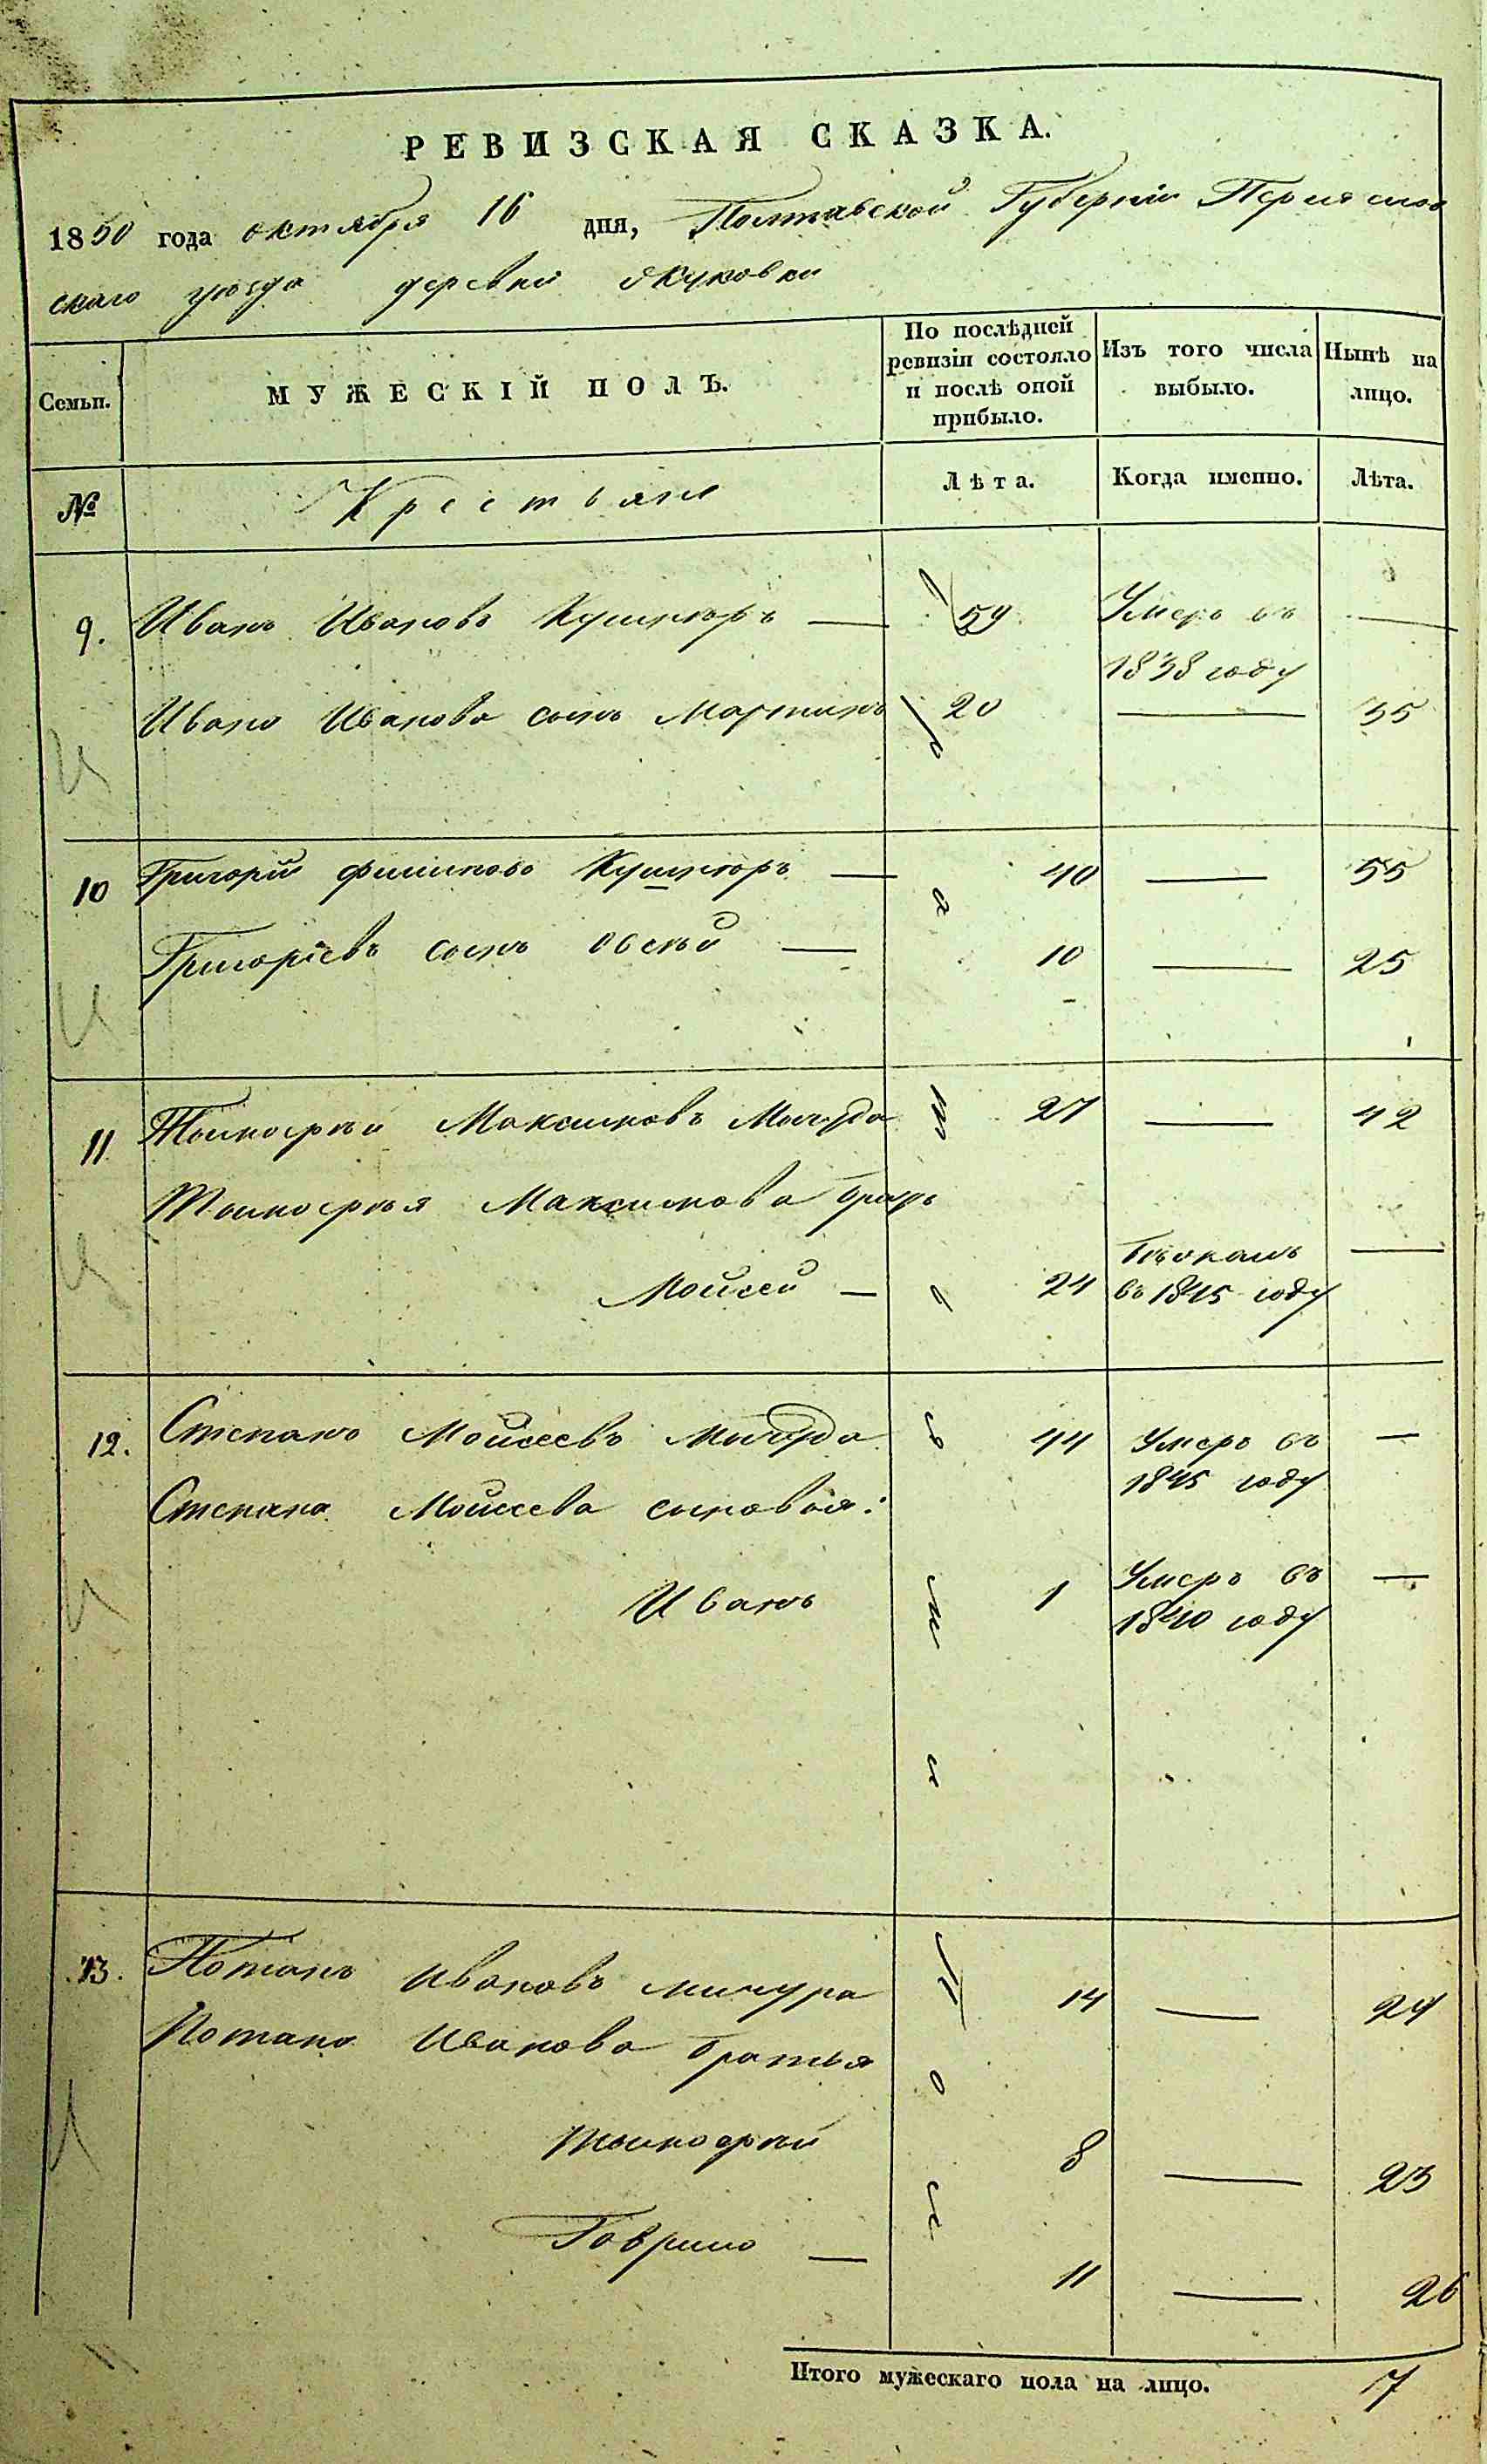 РЕВИЗСКАЯ СКАЗКА.
1850 года октября 16 дня, Полтавской Губерніи Переяслов
скаго уѣзда деревни Якуковки
Семьи.
МУЖЕСКІЙ ПОЛЪ.
По послѣдней ревизіи состояло и послѣ оной прибыло.
Изъ того числа выбыло.
Нынѣ на лицо.
№
Крестьяне
Лѣта.
Когда именно.
Лѣта.
9. Иванъ Ивановъ Кушниръ — 59 Умеръ въ —
1838 году
Ивана Иванова сынъ Мартинъ 20 — 35
10 Григорій Филиповъ Кушниръ — 40 — 55
Григоріевъ сынъ — 10 — 25
11 Тимофѣй Максимовъ 27 — 42
Тимофѣя Максимова братъ
Мойсей — 24 Бѣжалъ —
въ 1845 году
12. Степанъ Мойсеевъ 44 Умеръ въ —
1845 году
Степана Мойсеева сыновья:
Иванъ 1 Умеръ въ —
1840 году
13. Потапъ Ивановъ мичура 14 — 29
Потапа Иванова братья
Тимофѣй 8 — 23
Гаврило — 11 — 26
Итого мужескаго пола на лицо. 7